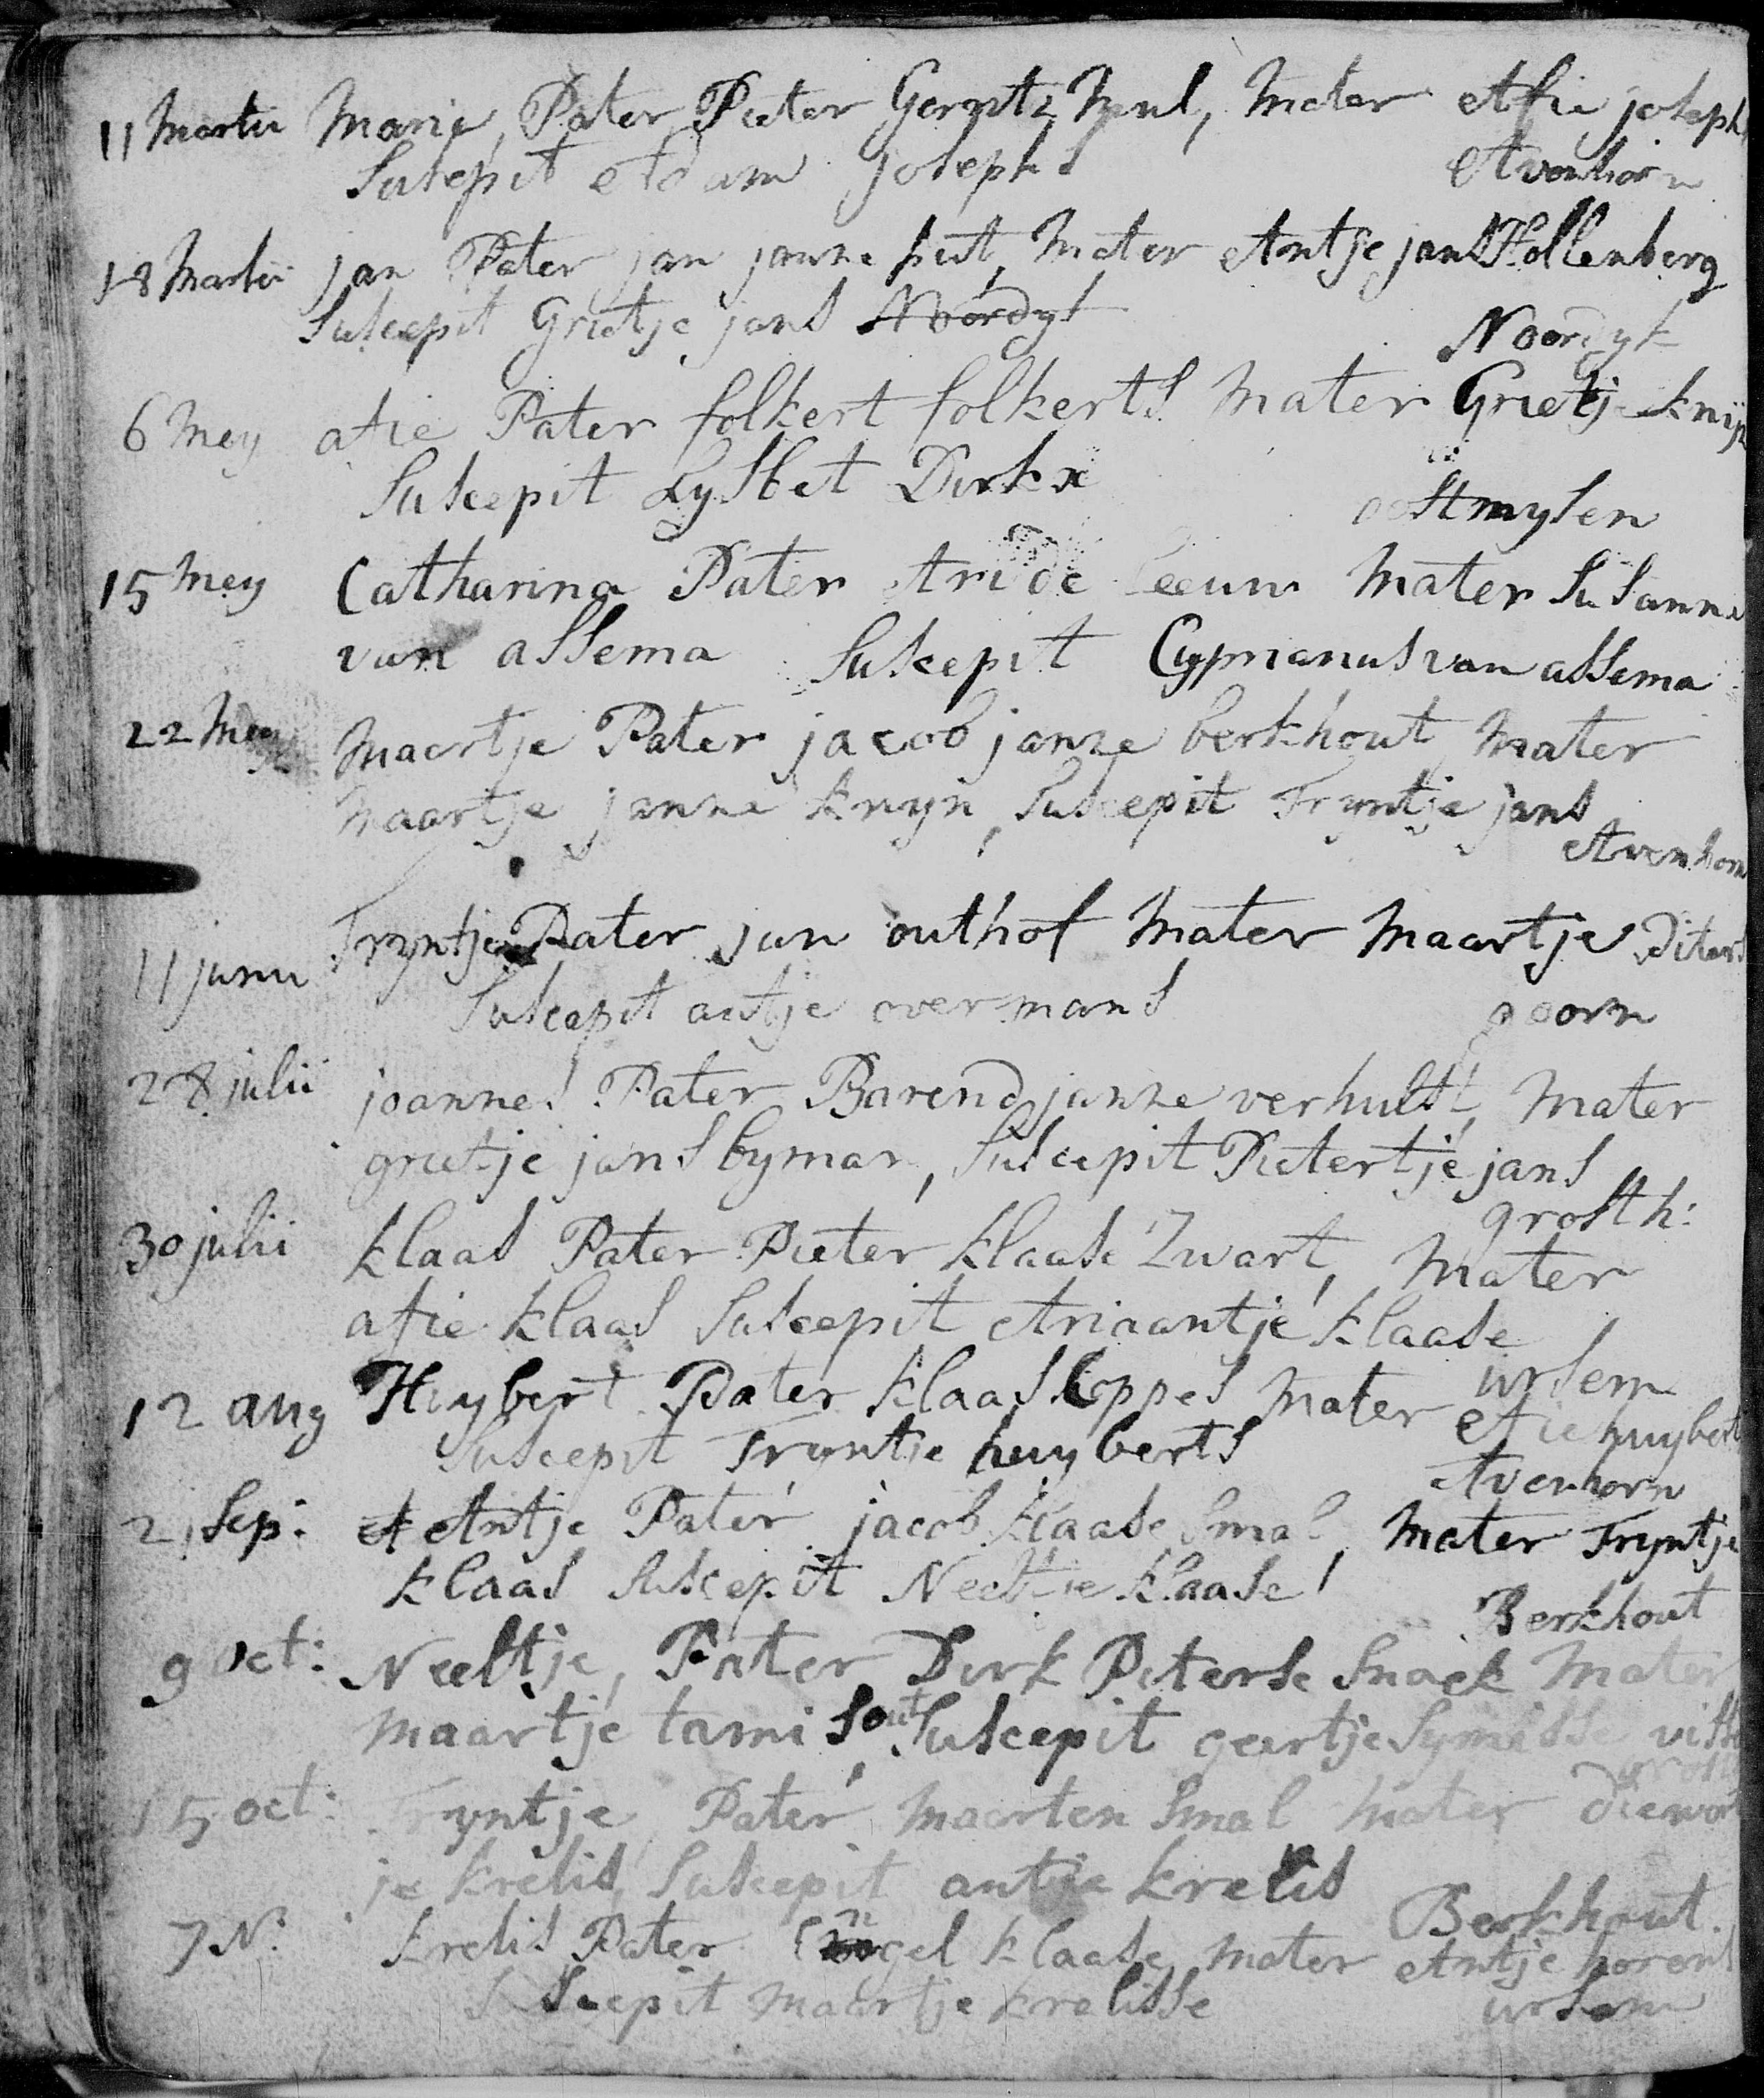 11 Martii Marie, Pater Pieter Gerritz Mul, Mater Afie josephs
Suscepit Adam josephs Avenhorn
18 Martii jan Pater jan janze put, Mater Antje jans Hollenberg
Suscepit Grietje jans Noordyk Noordyk
6 Mey afie Pater folkert folkerts Mater Grietje knijn
Suscepit Lysbet Dirkx oostmysen
15 Mey Catharina Pater Ari de Leeuw Mater Susanna
van assema Suscepit Cyprianus van assema
22 Mey Maertje Pater jacob janze berkhout, Mater
Maartje janne knyn, Suscepit Tryntje jans
Avenhorn
11 junii Tryntje Pater jan outhof Mater Maartje
Suscepit antje overmans goorn
28 julii joannes Pater Barend janze verhulst, Mater
grietje jans bymar, Suscepit Pietertje jans
grosth:
30 julii klaas Pater Pieter klaase Zwart, Mater
afie klaas Suscepit Ariaantje klaase
ursem
12 aug Huybert Pater klaas Coppes Mater Afie huyberts
Suscepit Tryntje huyberts Avenhorn
21 Sep: Antje Pater jacob klaase Smal, Mater Tryntje
klaas Suscepit Neeltie klaase Berkhout
9 oct: Neeltje, Pater Dirk Piterse Snoek Mater
maartje tamis out, Suscepit geertje Symesse
15 oct: Tryntje Pater Maarten Smal Mater diewert
je krelis, Suscepit antje krelis
Berkhout
7 N: krelis Pater Engel klaase, Mater Antje
Suscepit Maartje krelisse ursem